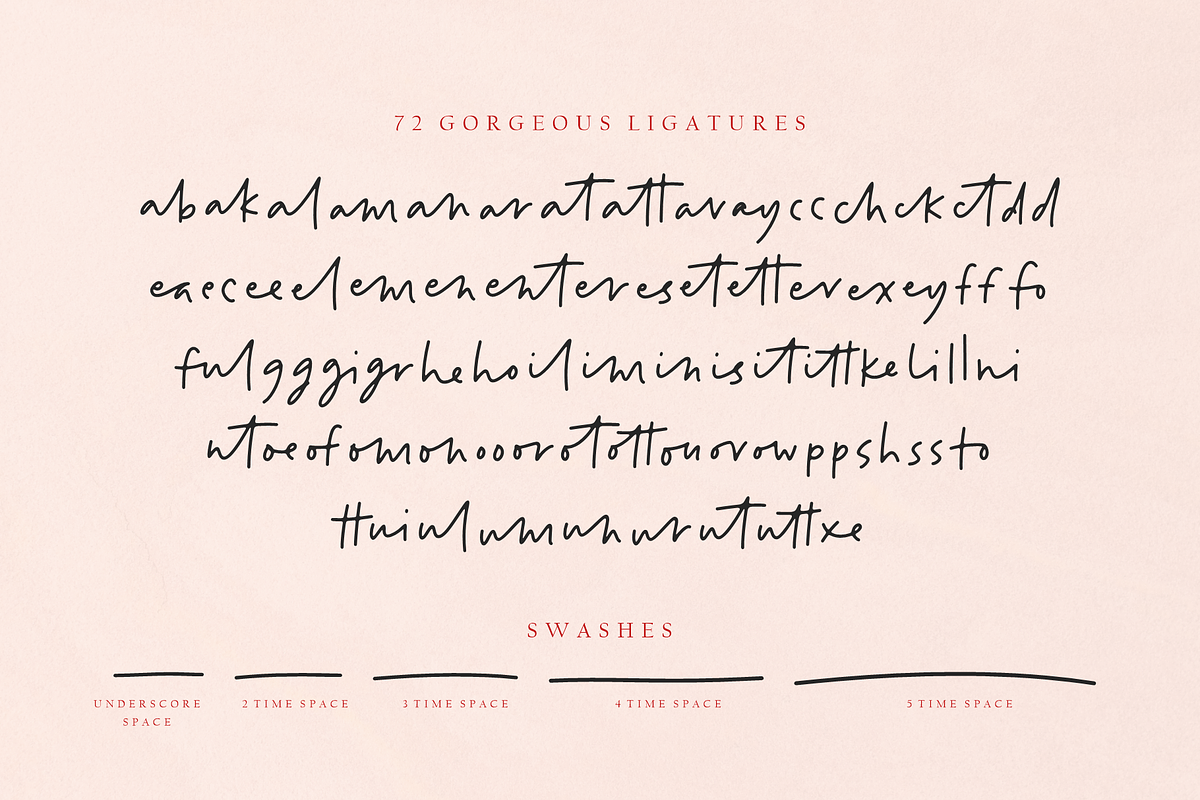 72 GORGEOUS LIGATURES
abakalamanaratattavayccchckctdd
eaeceeelemenenteresetetteverexeyfffo
fulgggigrhehoiliminisitittkelillni
ntoeofomonooorotottouovowppshssto
ttuiulumunurututtxe
SWASHES
UNDERSCORE SPACE
2 TIME SPACE
3 TIME SPACE
4 TIME SPACE
5 TIME SPACE